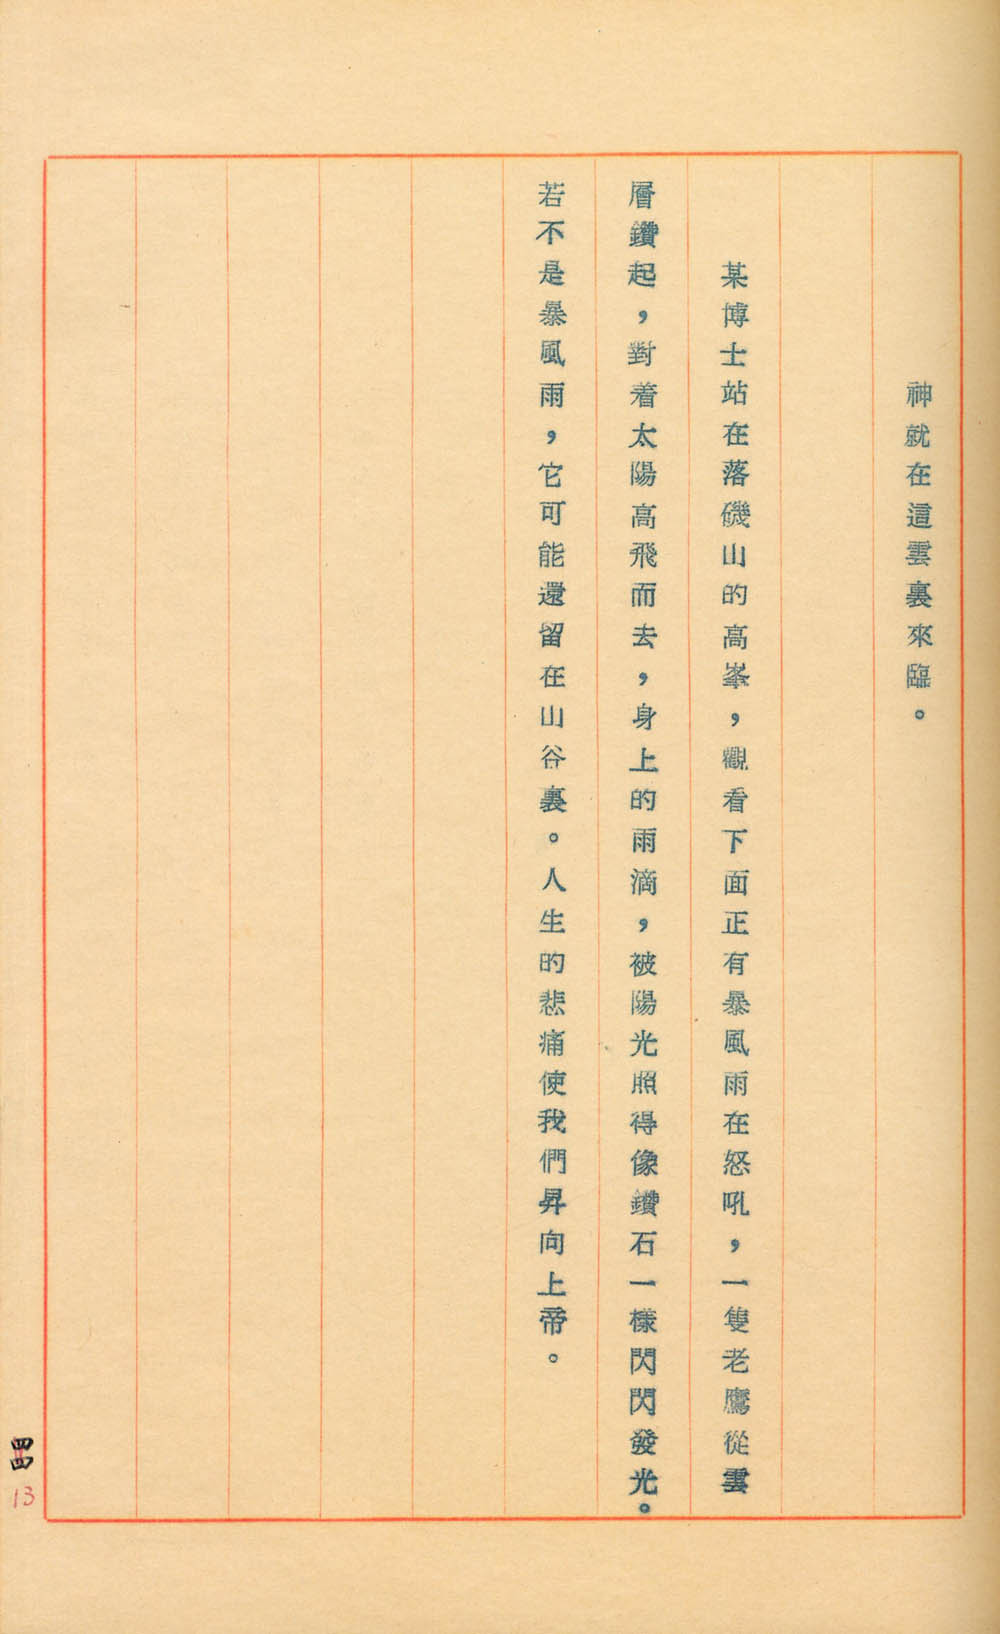 神就在這雲裏來臨。
某博士站在落磯山的高峯，觀看下面正有暴風雨在怒吼，一隻老鷹從雲
層鑽起，對着太陽高飛而去，身上的雨滴，被陽光照得像鑽石一樣閃閃發光。
若不是暴風雨，它可能還留在山谷裏。人生的悲痛使我們昇向上帝。
四四
13